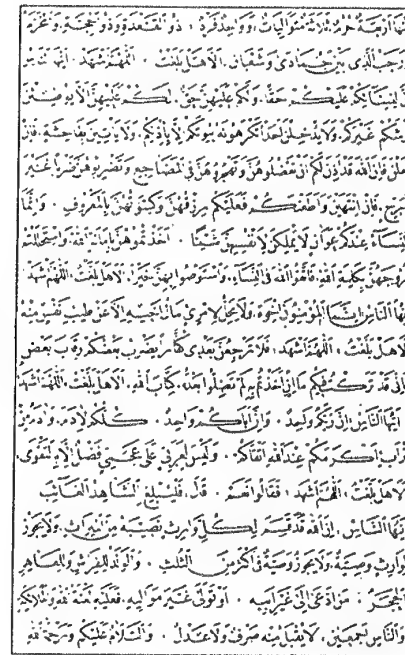 منها أربعة حرم، ثلاثة متواليات، وواحد فرد: ذو القعدة وذو الحجة والمحرم
ورجب الذي بين جمادى وشعبان. ألا هل بلغت. اللهم اشهد. أيها الناس
إن لنسائكم عليكم حقا ولكم عليهن حق. لكم عليهن ألا يوطئن
فرشكم غيركم ولا يدخلن أحدا تكرهونه بيوتكم إلا بإذنكم ولا يأتين بفاحشة. فإن
فعلن فإن الله قد أذن لكم أن تعضلوهن وتهجروهن في المضاجع وتضربوهن ضربا غير
مبرح. فإن انتهين وأطعنكم فعليكم رزقهن وكسوتهن بالمعروف. وإنما
النساء عندكم عوان لا يملكن لأنفسهن شيئا. أخذتموهن بأمانة الله واستحللتم
فروجهن بكلمة الله فاتقوا الله في النساء واستوصوا بهن خيرا. ألا هل بلغت. اللهم اشهد
أيها الناس إنما المؤمنون إخوة ولا يحل لامرئ مال أخيه إلا عن طيب نفس منه
ألا هل بلغت: اللهم اشهد: فلا ترجعن بعدي كفارا يضرب بعضكم رقاب بعض
فإني قد تركت فيكم ما إن أخذتم به لم تضلوا بعده: كتاب الله. ألا هل بلغت: اللهم اشهد
أيها الناس إن ربكم واحد. وإن أباكم واحد. كلكم لآدم. وآدم من
تراب أكرمكم عند الله أتقاكم. وليس لعربي على عجمي فضل إلا بالتقوى.
ألا هل بلغت: اللهم اشهد: فقالوا نعم. قال. فليبلغ الشاهد الغائب
أيها الناس. إن الله قد قسم لكل وارث نصيبه من الميراث ولا يجوز
لوارث وصية. ولا يجوز وصية في أكثر من الثلث. والولد للفراش وللعاهر
الحجر: من ادعى إلى غير أبيه. أو تولى غير مواليه. فعليه لعنة الله والملائكة
والناس أجمعين. لا يقبل منه صرف ولا عدل. والسلام عليكم ورحمة الله